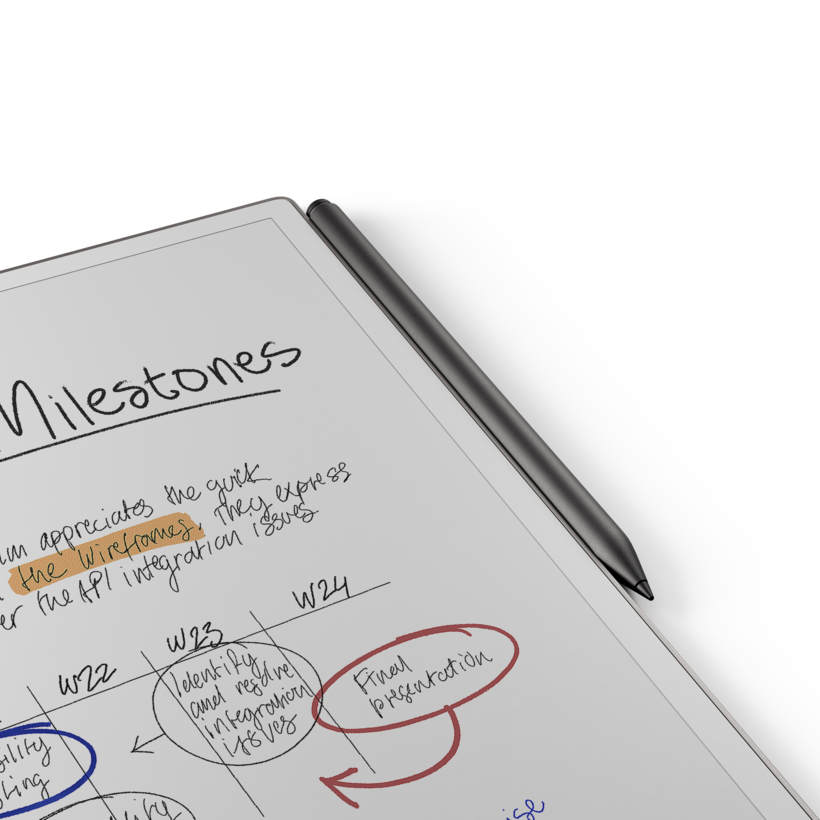 Milestones
appreciates the quick
the Wireframes, they express
the API integration issues
W22 W23 W24
Identify
and resolve
integration
issues
Final
presentation